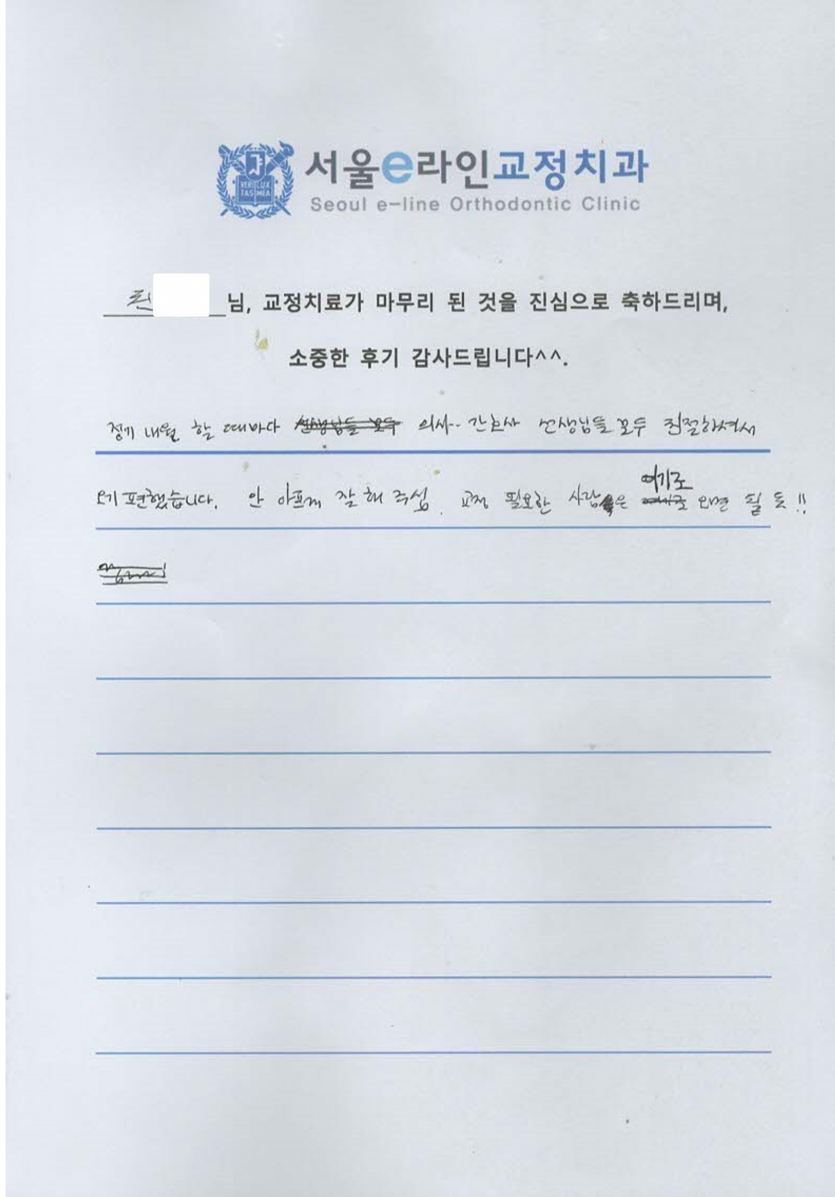 VERI LUX TAS MEA
서울e라인교정치과
Seoul e-line Orthodontic Clinic
님, 교정치료가 마무리 된 것을 진심으로 축하드리며,
소중한 후기 감사드립니다^^.
정기 내원 할 때마다 선생님들 모두 의사·간호사 선생님들 모두 친절하셔서
오기 편했습니다. 안 아프게 잘 해 주심. 교정 필요한 사람은 여기로 오면 될 듯!!